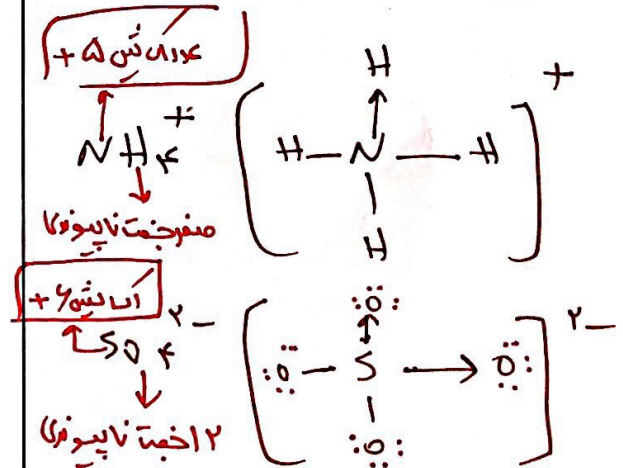 عدد اکسایش ۵+
NH۴+
صفر جفت ناپیوندی
[H — N — H
H
H]+
اکسایش ۶+
SO۴ ۲−
۱۲ جفت ناپیوندی
[:Ö:
:Ö — S → Ö:
:O:] ۲−